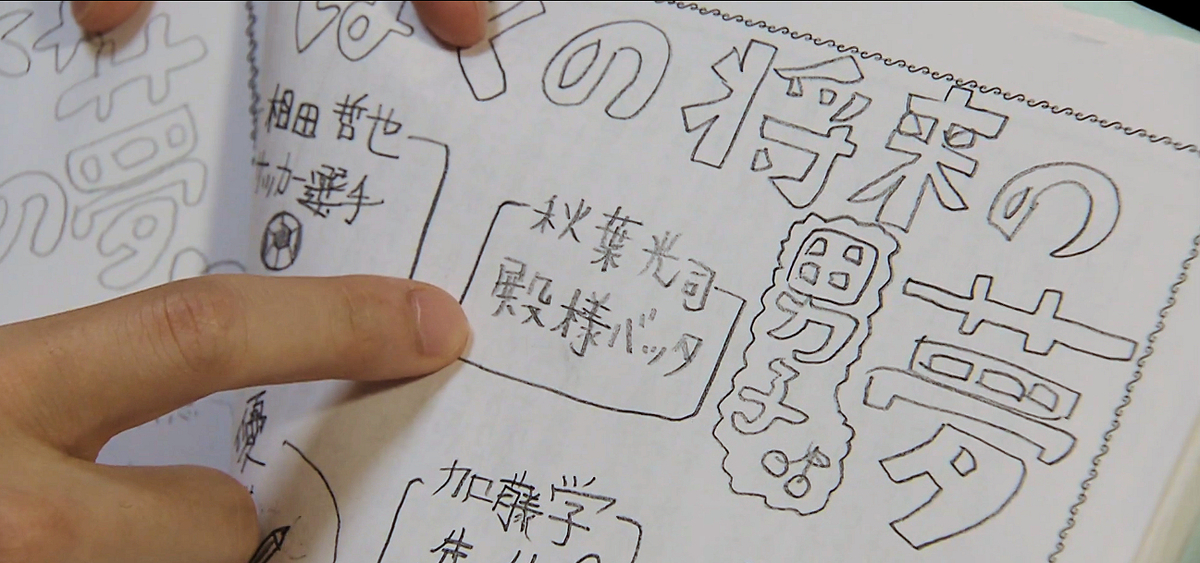 ぼくの将来の
夢
男子
相田 哲也
サッカー選手
秋葉光司
殿様バッタ
加藤学
優
夢
の